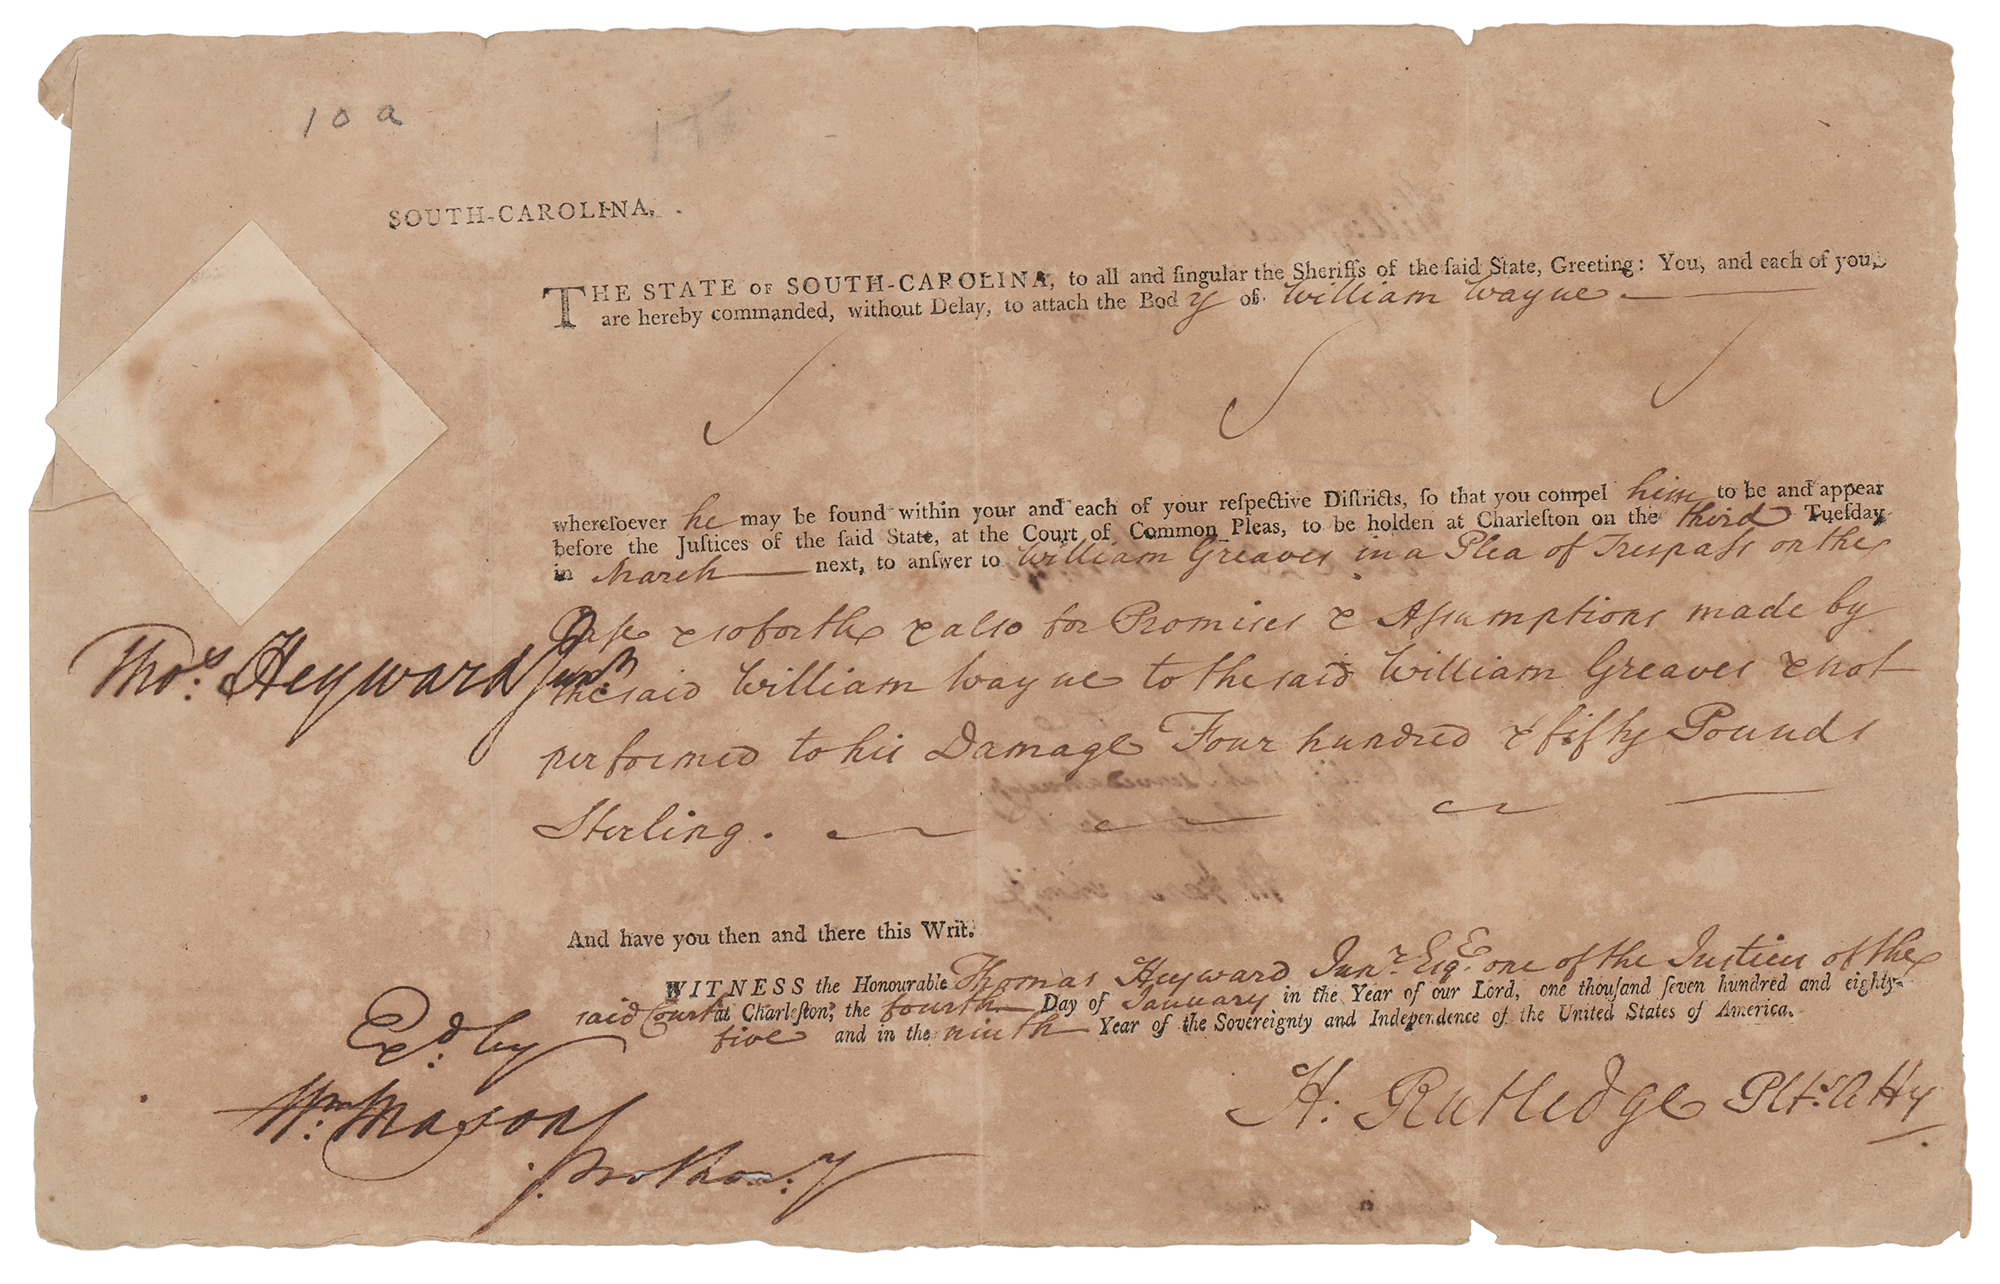 10 a
SOUTH-CAROLINA.
THE STATE OF SOUTH-CAROLINA, to all and ſingular the Sheriffs of the ſaid State, Greeting: You, and each of you,
are hereby commanded, without Delay, to attach the Body of William Wayne
whereſoever he may be found within your and each of your reſpective Diſtricts, ſo that you compel him to be and appear
before the Juſtices of the ſaid State, at the Court of Common Pleas, to be holden at Charleſton on the third Tueſday
in March next, to anſwer to William Greaves in a Plea of Treſpaſs on the
Case & so forth & also for Promises & Aſsumptions made by
Thos. Heyward Junr.
the said William Wayne to the said William Greaves & not
performed to his Damage Four hundred & fifty Pounds
Sterling.
And have you then and there this Writ.
WITNESS the Honourable Thomas Heyward Junr. Esqe. one of the Justices of the
said Court at Charleſton, the fourth Day of January in the Year of our Lord, one thouſand ſeven hundred and eighty-
five and in the ninth Year of the Sovereignty and Independence of the United States of America.
Exd. by
Wm. Mason
H: Rutledge Plts. Atty